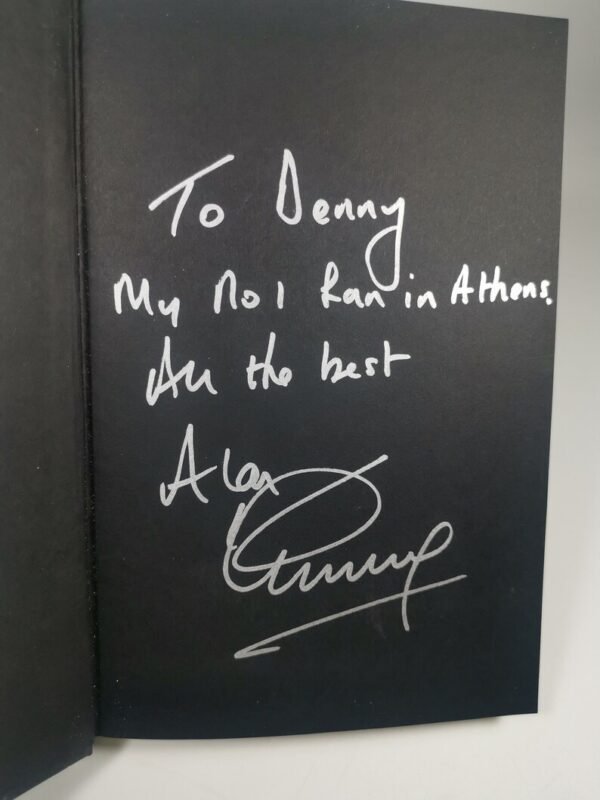 To Denny
My No 1 Fan in Athens.
All the best
Alan